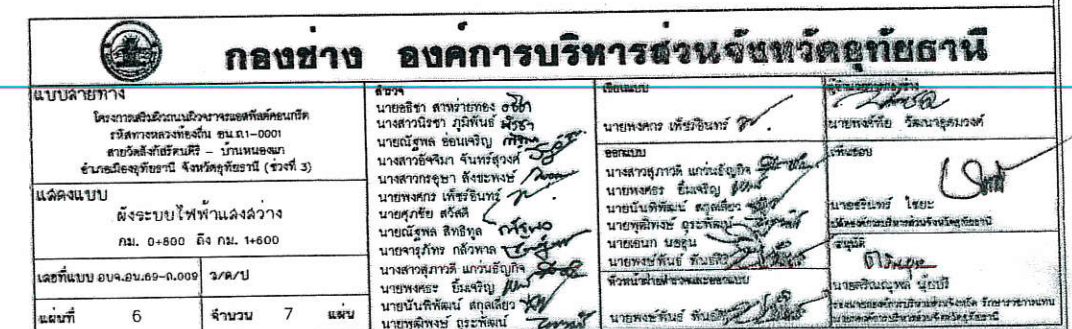 กองช่าง องค์การบริหารส่วนจังหวัดอุทัยธานี
แบบสายทาง
โครงการเสริมผิวถนนผิวจราจรแอสฟัลต์คอนกรีต
รหัสทางหลวงท้องถิ่น อน.ถ.1-0001
สายวัดสังกัสรัตนคีรี - บ้านหนองแก
อำเภอเมืองอุทัยธานี จังหวัดอุทัยธานี (ช่วงที่ 3)
แสดงแบบ
ผังระบบไฟฟ้าแสงสว่าง
กม. 0+800 ถึง กม. 1+600
เลขที่แบบ อบจ.อน.69-ถ.009
ว/ด/ป
แผ่นที่ 6
จำนวน 7 แผ่น
สำรวจ
นายอธิชา สาหร่ายทอง
นางสาวนิรชา ภูมิพันธ์
นายณัฐพล อ่อนเจริญ
นางสาวอัจจิมา จันทร์สุวงศ์
นางสาวกรอุษา สังขะพงษ์
นายพงศกร เพ็ชรอินทร์
นายศุภชัย สวัสดี
นายณัฐพล สิทธิทูล
นายจารุภัทร กลัวพาล
นางสาวสุภาวดี แก่นธัญกิจ
นายพงศธร ยิ้มเจริญ
นายนันทิพัฒน์ สกุลเลี่ยว
นายพุฒิพงษ์ ถุระพัฒน์
เขียนแบบ
นายพงศกร เพ็ชรอินทร์
ออกแบบ
นางสาวสุภาวดี แก่นธัญกิจ
นายพงศธร ยิ้มเจริญ
นายนันทิพัฒน์ สกุลเลี่ยว
นายพุฒิพงษ์ ถุระพัฒน์
นายเอนก
นายพงษ์พันธ์
หัวหน้าฝ่ายสำรวจและออกแบบ
นายพงษ์พันธ์
ผู้อำนวยการกองช่าง
นายพงษ์ชัย วัฒนาอุดมวงศ์
เห็นชอบ
นายสุรินทร์ ไชยะ
ปลัดองค์การบริหารส่วนจังหวัดอุทัยธานี
อนุมัติ
รองนายกองค์การบริหารส่วนจังหวัด รักษาราชการแทน
นายกองค์การบริหารส่วนจังหวัดอุทัยธานี